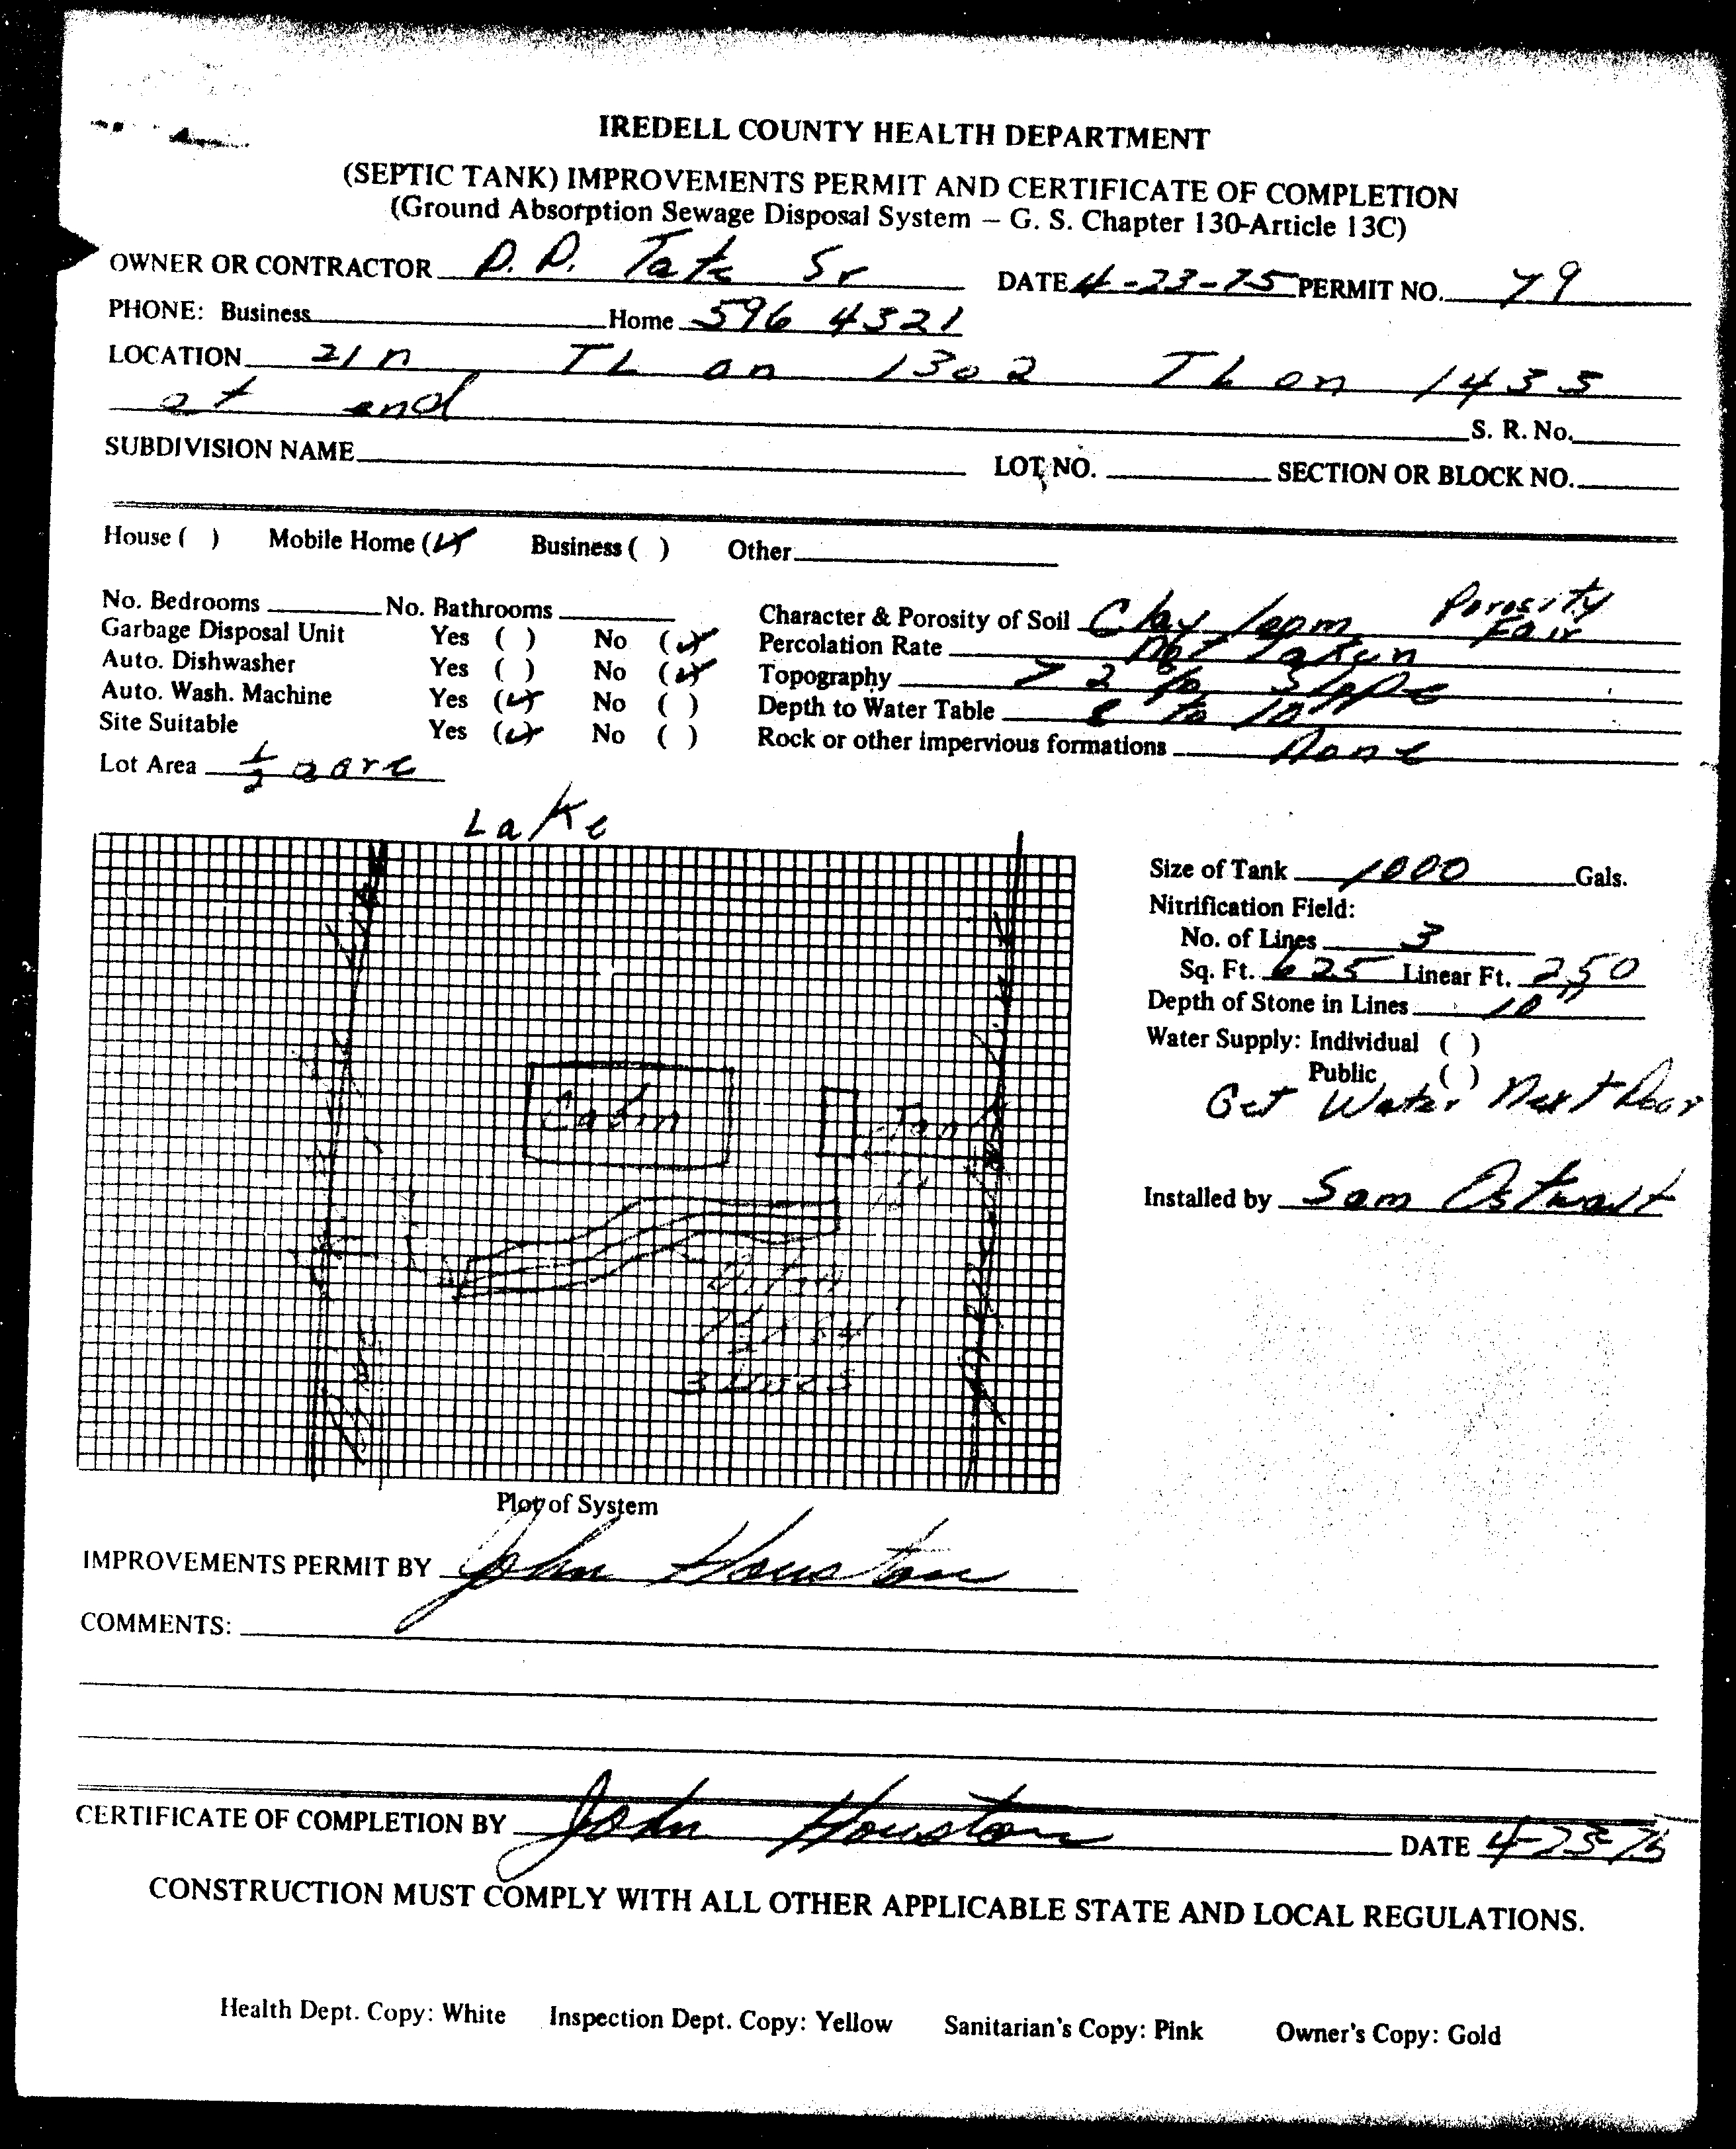 IREDELL COUNTY HEALTH DEPARTMENT
(SEPTIC TANK) IMPROVEMENTS PERMIT AND CERTIFICATE OF COMPLETION
(Ground Absorption Sewage Disposal System – G. S. Chapter 130-Article 13C)
OWNER OR CONTRACTOR Tate Sr DATE 4-23-75 PERMIT NO. 79
PHONE: Business Home 596 4321
LOCATION 21 n TL on 1302 TL on 1435
at end
S. R. No.
SUBDIVISION NAME LOT NO. SECTION OR BLOCK NO.
House ( ) Mobile Home (✓) Business ( ) Other
No. Bedrooms No. Bathrooms Character & Porosity of Soil Clay loam Porosity Fair
Garbage Disposal Unit Yes ( ) No (✓) Percolation Rate Not Taken
Auto. Dishwasher Yes ( ) No (✓) Topography 2 % Slope
Auto. Wash. Machine Yes (✓) No ( ) Depth to Water Table 8 to 10
Site Suitable Yes (✓) No ( ) Rock or other impervious formations None
Lot Area 1/2 acre
Lake
Size of Tank 1000 Gals.
Nitrification Field:
No. of Lines 3
Sq. Ft. 625 Linear Ft. 250
Depth of Stone in Lines 10"
Water Supply: Individual ( )
Public ( )
Get Water Next Door
Installed by Sam Ostwalt
Cabin
Tank
3 Lines
Plot of System
IMPROVEMENTS PERMIT BY John Houston
COMMENTS:
CERTIFICATE OF COMPLETION BY John Houston DATE 4-23-75
CONSTRUCTION MUST COMPLY WITH ALL OTHER APPLICABLE STATE AND LOCAL REGULATIONS.
Health Dept. Copy: White Inspection Dept. Copy: Yellow Sanitarian's Copy: Pink Owner's Copy: Gold